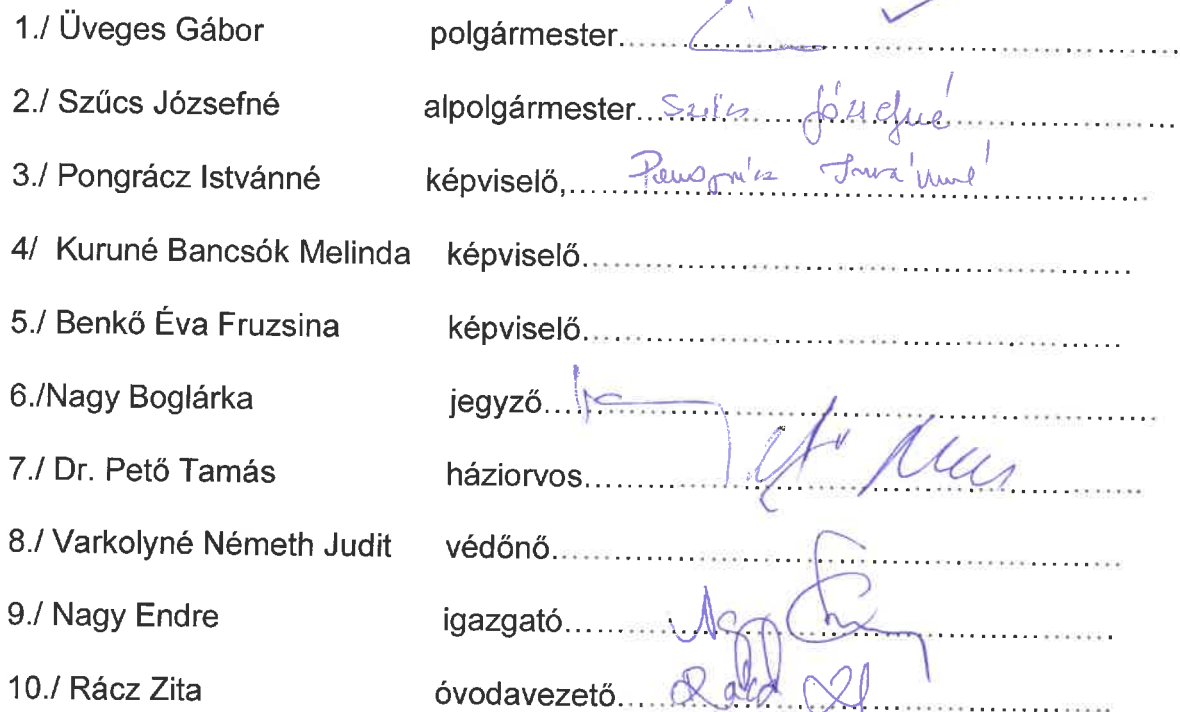 1./ Üveges Gábor polgármester..........
2./ Szűcs Józsefné alpolgármester...Szűcs Józsefné..........
3./ Pongrácz Istvánné képviselő,.....Pongrácz Istvánné..........
4/ Kuruné Bancsók Melinda képviselő..........
5./ Benkő Éva Fruzsina képviselő..........
6./Nagy Boglárka jegyző..........
7./ Dr. Pető Tamás háziorvos..........
8./ Varkolyné Németh Judit védőnő..........
9./ Nagy Endre igazgató..........
10./ Rácz Zita óvodavezető..........